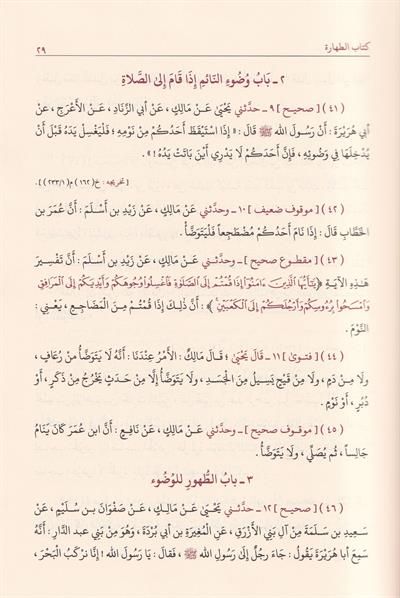 كتاب الطهارة ٢٩
٢ ـ بَابُ وُضُوءِ النَّائِمِ إِذَا قَامَ إِلَىٰ الصَّلَاةِ
(٤١) [ صحيح ] ٩ ـ حدَّثني يَحْيَىٰ عَنْ مَالِكٍ، عَنْ أبي الزِّنَادِ، عَـنْ الأَعْرَجِ، عنْ
أبي هُرَيْرَةَ : أَنَّ رَسُولَ اللهِ ﷺ قَالَ : « إِذَا اسْتَيْقَظَ أَحَدُكُمْ مِنْ نَوْمِهِ ؛ فَلْيَغْسِلْ يَدَهُ قَبْلَ أَنْ
يُدْخِلَهَا فِي وَضُوئِهِ، فَإِنَّ أَحَدَكُمْ لَا يَدْرِي أَيْنَ بَاتَتْ يَدُهُ ! » .
[ تخريجه : خ( ١٦٢ ) م( ٢٣٣/١ ) ] .
(٤٢) [ موقوف ضعيف ] ١٠ ـ وحدَّثني عَنْ مَالِكٍ، عَنْ زَيْدِ بنِ أَسْلَمَ : أَنَّ عُمَرَ بن
الخَطَّابِ قَالَ : إِذَا نَامَ أَحَدُكُمْ مُضْطَجِعاً فَلْيَتَوَضَّأْ .
(٤٣) [ مقطوع صحيح ] ـ وحدَّثني عَنْ مَالِكٍ، عَنْ زَيْدِ بن أَسْلَمَ : أَنَّ تَفْسِيرَ
هَـٰذِهِ الآيَـةِ ﴿ يَتَأَيُّهَا الَّذِينَ ءَامَنُوٓا إِذَا قُمْتُمْ إِلَى الصَّلَوٰةِ فَاغْسِلُوا وُجُوهَكُمْ وَأَيْدِيَكُمْ إِلَى الْمَرَافِقِ
وَامْسَحُوا بِرُءُوسِكُمْ وَأَرْجُلَكُمْ إِلَى الْكَعْبَيْنِ ﴾ : أَنَّ ذَلِـكَ إِذَا قُمْتُمْ مِـنَ المَضَـاجِـعِ ، يَعْنِي :
النَّوْمَ .
(٤٤) [ فتوىٰ ] ١١ ـ قَالَ يَحْيَىٰ ؛ قَالَ مَالِكٌ : الأَمْرُ عِنْدَنَا : أَنَّهُ لَا يَتَوَضَّأُ مِنْ رُعَافٍ،
ولَا مِـنْ دَمٍ ، ولَا مِنْ قَيْحٍ يَسِيلُ مِنَ الجَسَدِ، ولَا يَتَوَضَّأُ إِلَّا مِنْ حَدَثٍ يَخْرُجُ مِنْ ذَكَرٍ، أَوْ
دُبُرٍ، أَوْ نَوْمٍ .
(٤٥) [ موقوف صحيح ] ـ وحدَّثني عَنْ مَالِكٍ، عَنْ نَافِعٍ : أَنَّ ابن عُمَرَ كَانَ يَنَامُ
جَالِساً، ثُمَّ يُصَلِّي ، ولَا يَتَوَضَّأُ .
٣ ـ بابُ الطَّهُورِ للوُضُوءِ
(٤٦) [ صحيح ] ١٢ ـ حدَّثني يَحْيَىٰ عَنْ مَالِـكٍ، عَنْ صَفْوَانَ بْن سُلَيْمٍ ، عَن
سَعِيدِ بن سَلَمَةَ مِنْ آلِ بَنِي الأَزْرَقِ ، عَن المُغِيرَةِ بن أبي بُرْدَةَ ، وَهُوَ مِنْ بَنِي عبد الدَّارِ : أَنَّهُ
سَمِعَ أَبَا هُرَيْرَةَ يَقُولُ : جَاءَ رَجُلٌ إِلَىٰ رَسُولِ اللهِ ﷺ ، فَقَالَ : يَا رَسُولَ اللهِ ! إِنَّا نَرْكَبُ البَحْرَ،